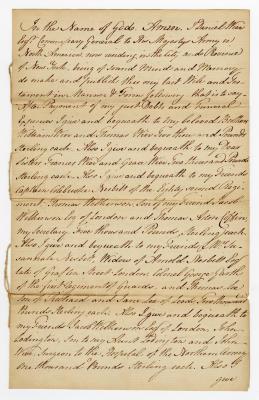 In the Name of God. Amen. I Daniel Wier
Esqr. Commissary General to His Majestys Army in
North America now residing in the City and Province
of New York, being of sound Mind and Memory
do make and publish this my last Will and Tes-
tament in Manner & Form following that is to say
After Payment of my just Debts and Funeral
Expences I give and bequeath to my beloved Brothers
William Wier and Thomas Wier Two thousand Pounds
Sterling each. Also I give and bequeath to my Dear
Sisters Frances Wier and Grace Wier Two thousand Pounds
Sterling each. Also I give and bequeath to my Friends
Captain Nesbitt of the Eighty second Regi-
ment, Thomas Wilkinson Son of my Friend Jacob
Wilkinson Esqr. of London and Thomas Aston Coffin
my Secretary Five thousand Pounds Sterling each.
Also I give and bequeath to my Friends Mrs. Su-
sannah Nesbitt, Widow of Arnold Nesbitt Esqr.
late of Grafton Street London, Colonel George Garth
of the first Regiment of Guards, and Thomas Lee
Son of Richard and Jane Lee of Leeds Two thousand
Pounds Sterling each. Also I give and bequeath to
my Friends Jacob Wilkinson Esqr. of London, John
Lodington, Son to my Aunt Lodington and John
Wier Surgeon to the Hospital of the Northern Army
one thousand Pounds Sterling each. Also I
give